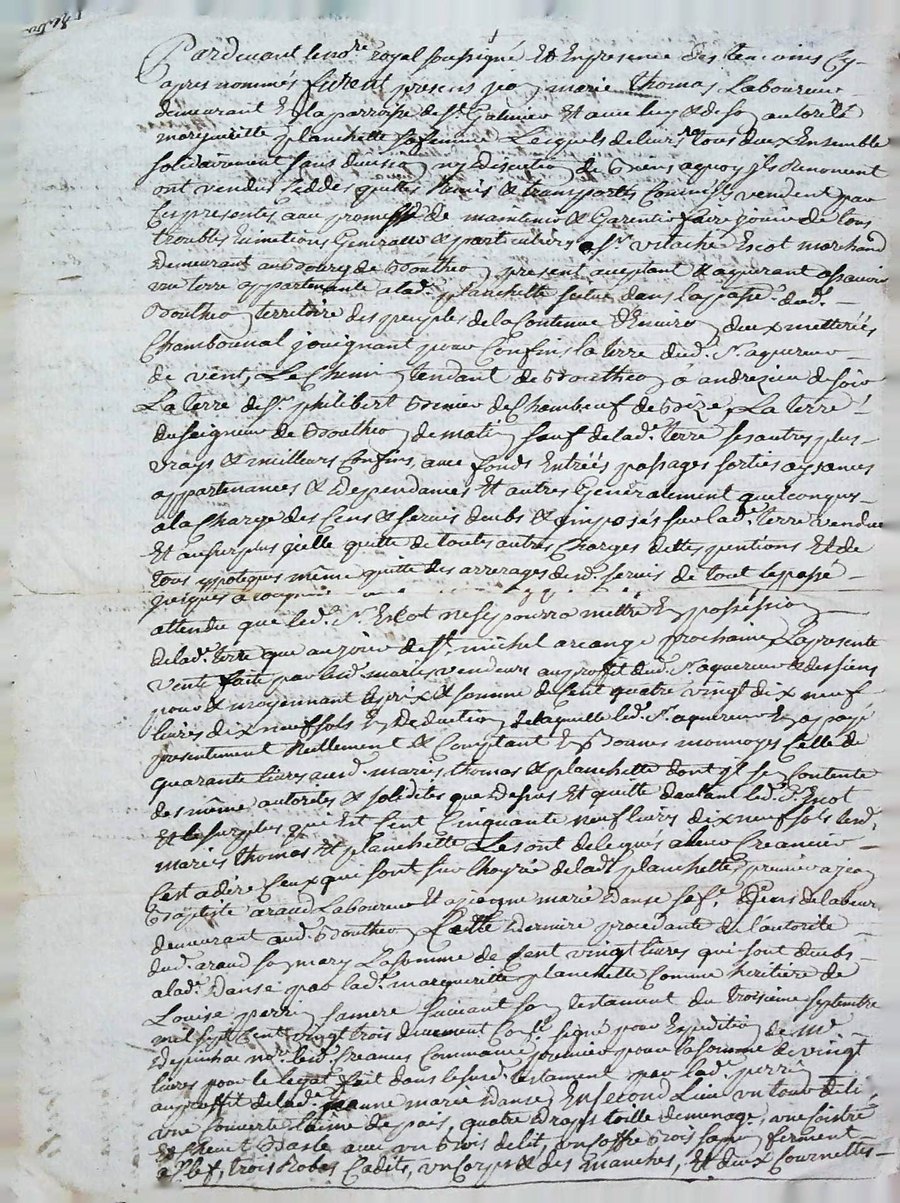 Pardevant le no.re royal soussigné Et En presence des temoins Cy-
apres nommés furent presens jea marie thomas Laboureur
demeurant En la parroisse de St. Galmier Et avec luy & de so autorité
margueritte planchette sa femme Lesquels de leur tous deux Ensemble
solidairement sans division ny discution de Biens aquoy jls Renoncent
ont vendus ceddés quittés Remis & transportés Comme jls vendent par
Ces presentes avec promesse de maintenir & Garentir faire jouir de tous
troubles Evinctions Generalle & particuliers a Sr. vitache Escot marchand
Demeurant au Bourg de Boutheo present aceptant & aquerant assavoir
une terre appartenante a lad. planchette scitue dans la parr. dud.
Boutheo territoire des peuples de la Contenue d'Enviro deux metterées
Chambounal jouignant pour Confins la terre dud. Sr. aquereur
de vent, Le Chemin tendant de Boutheo a andrezieu de soir
La terre de Sr. philibert de Chambeuf de Bize, La terre
du seigneur de Boutheo de mati sauf de lad. terre ses autres plus
vrays & meilleurs Confins, avec fonds Entréés passages sorties aysances
appartenances & Dependances Et autres Generalement quelconques
a la Charge des Cens & servis deubs & jmposés sur lad. terre vendue
Et au surplus jcelle quitte de touts autres Charges dettes pentions Et de
tous ypoteques même quitte des arrerages dud. servis de tout le passé
jusques a
attendu que led. Sr. Escot ne se pourra mettre En possession
de lad. terre que au jour de St. michel arcange prochaine, La presente
vente faite par led. mariés vendeurs au proffit dud. Sr. aquereur & des siens
pour & moyennant le prix & somme de Cent quatre vingt dix neuf
livres dix neuf sols En Deduction de laquelle led. Sr. aquereur En a payé
presentement Reellement & Comptant En Bonnes monnoyes Celle de
quarante livres aud. mariés thomas & planchette dont jl se Contente
des même autorités & solidités que Depus Et quitte dautant led. Sr. Escot
Et le surplus qui est Cent Cinquante neuf livres dix neuf sols led.
mariés thomas Et planchette Les ont delegués a leur Creancier
C'est a dire Ceux qui sont sur l'hoyrie de lad. planchette, premier a jea
Baptiste araud Laboureur Et a jeanne marie Danse sa fe. Gens de labeur
demeurant aud. Boutheo Cette Derniere procedante de l'autorité
dud. araud so mary La somme de Cent vingt livres qui sont deubs
a lad. Danse par lad. margueritte planchette Comme heritiere de
Louise perri sa mere suivant so testament du troisieme septembre
mil sept Cent vingt trois duement Con.lé signé pour Expeditio de Me.
Despinhac nor. led. Creances Commance premier pour la somme de vingt
livres pour le legat fait dans le sud. testament par lad. perri
au proffit de lad. jeanne marie Danse, En second Lieu un tour de lit,
une Couverte laine de païs, quatre draps toille de menage, une
Et avec un Bois de lit, un Coffre Bois sapi ferment
a Clef, trois Robes Cadits, un Corps & des Manches, Et deux Cournettes